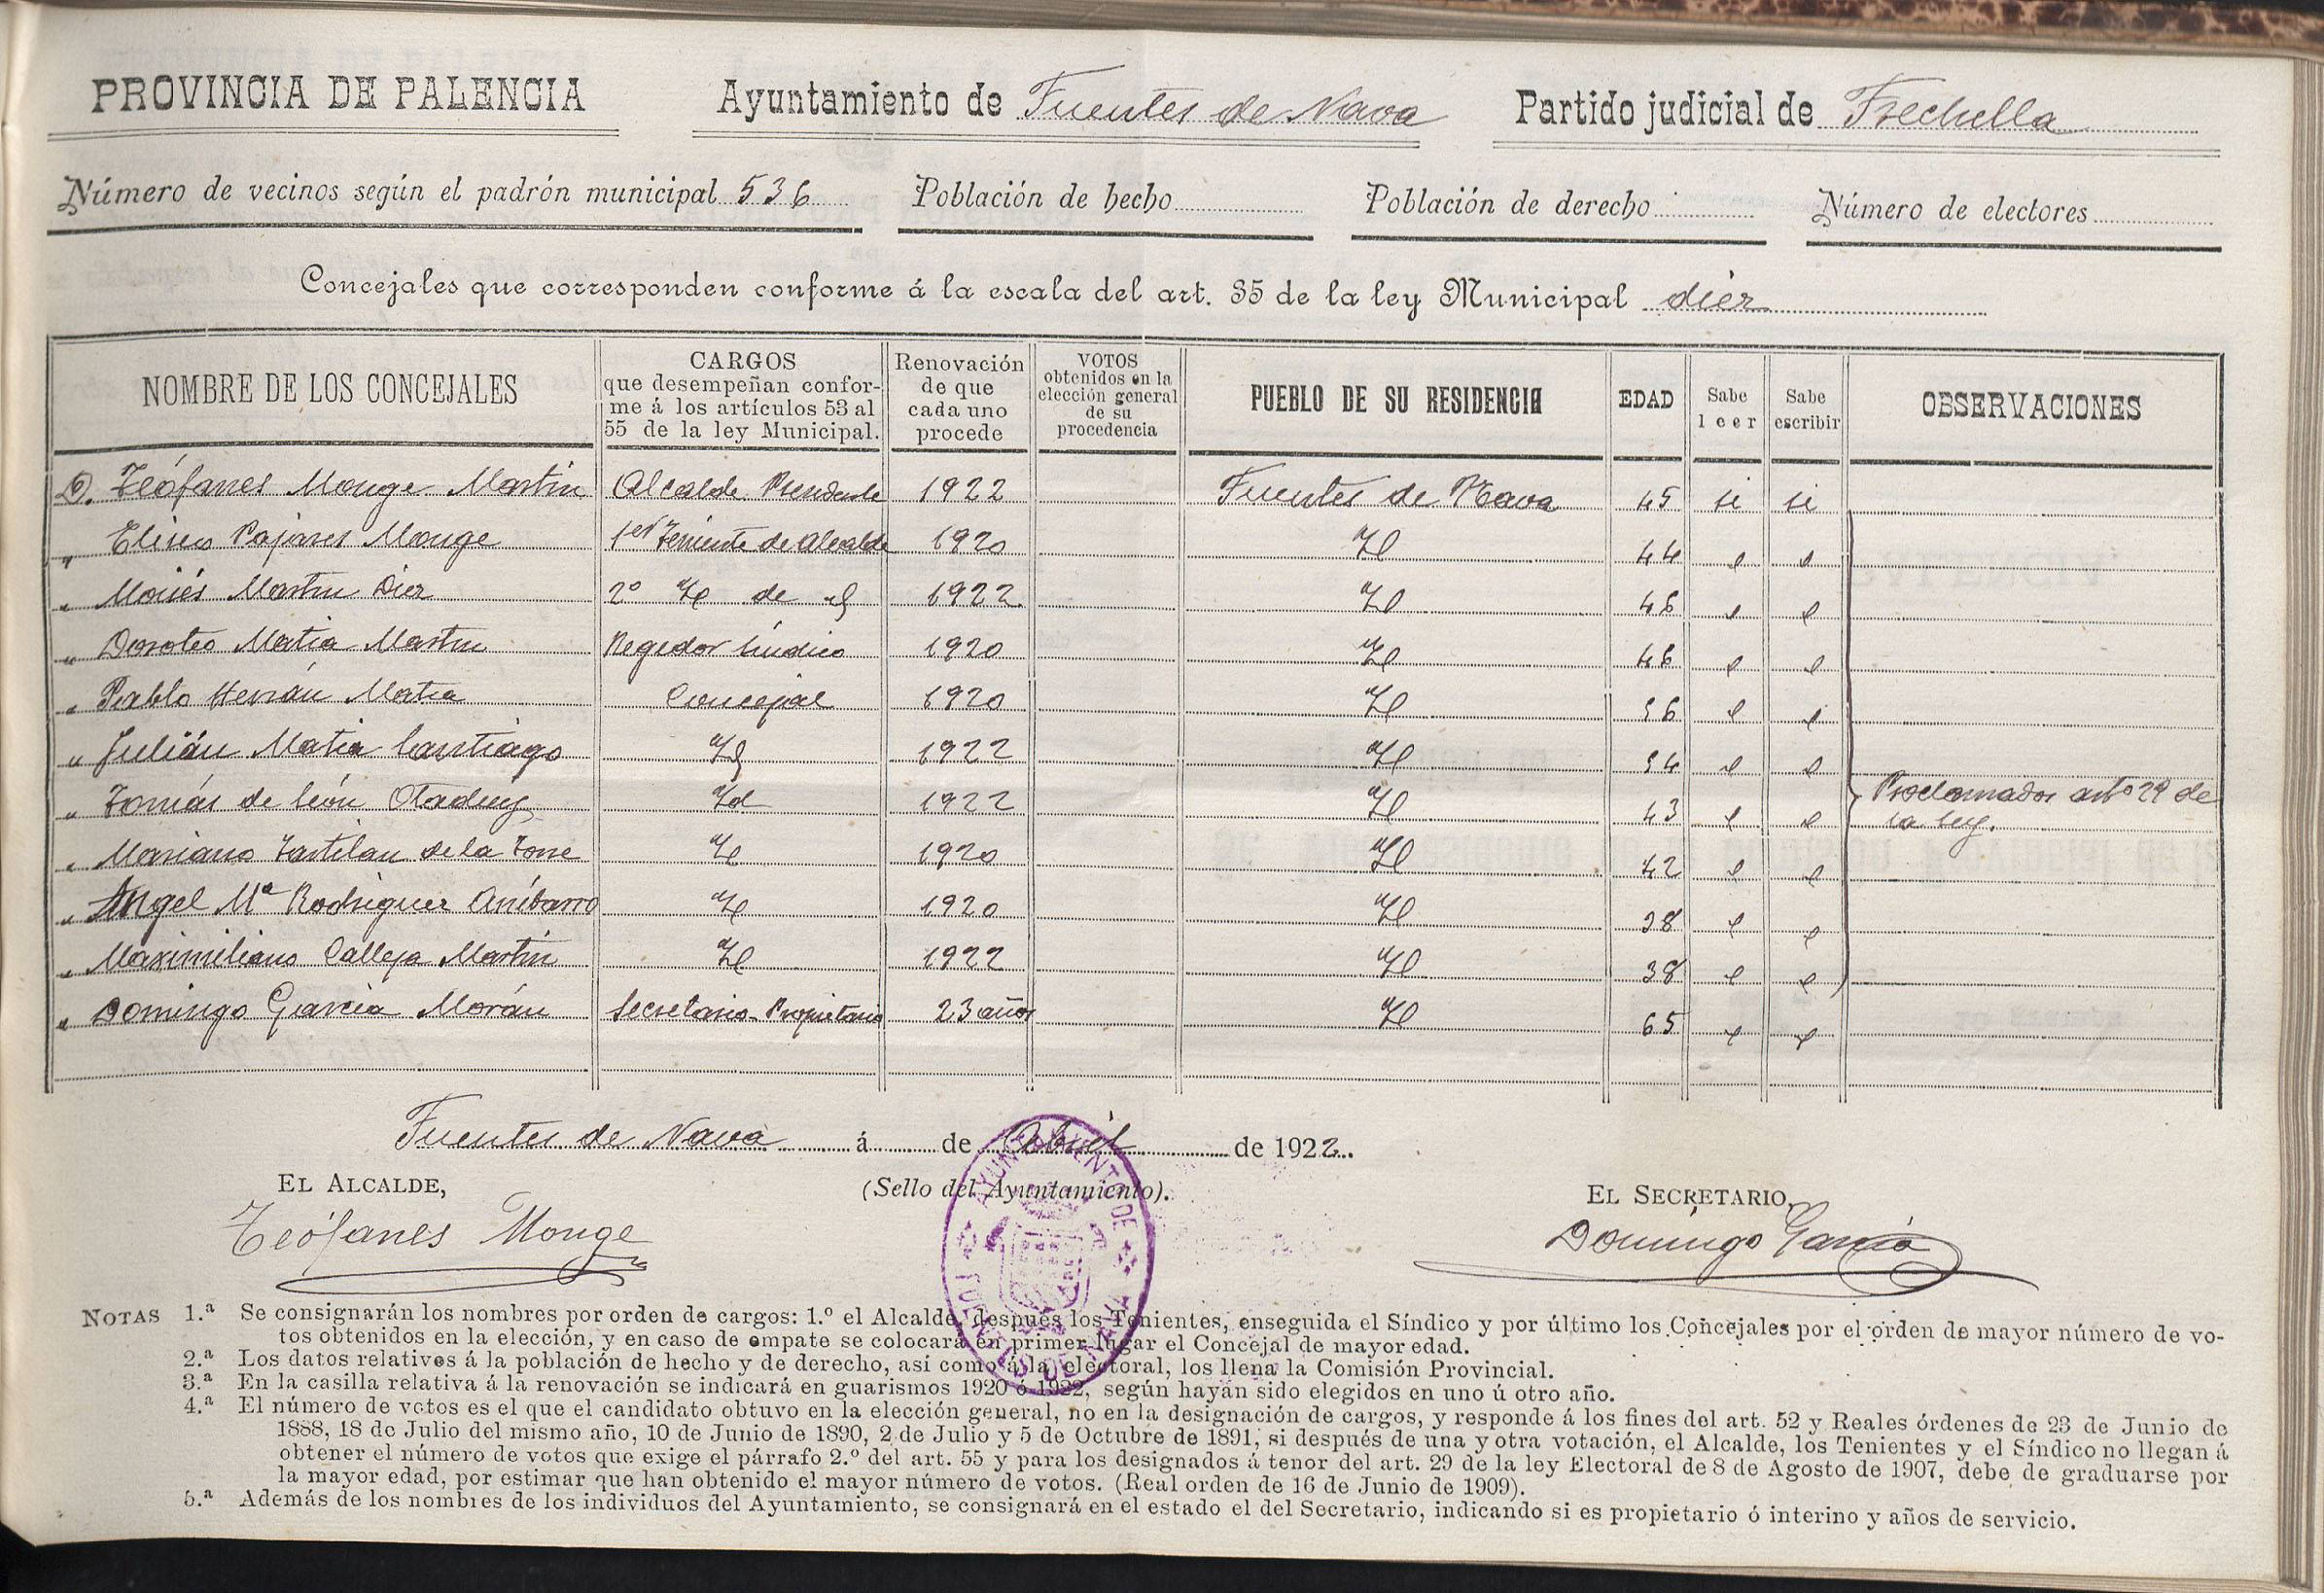 PROVINCIA DE PALENCIA Ayuntamiento de Fuentes de Nava Partido judicial de Frechilla
Número de vecinos según el padrón municipal 536 Población de hecho Población de derecho Número de electores
Concejales que corresponden conforme á la escala del art. 35 de la ley Municipal diez
NOMBRE DE LOS CONCEJALES
CARGOS
que desempeñan confor-
me á los artículos 53 al
55 de la ley Municipal.
Renovación
de que
cada uno
procede
VOTOS
obtenidos en la
elección general
de su
procedencia
PUEBLO DE SU RESIDENCIA
EDAD
Sabe
leer
Sabe
escribir
OBSERVACIONES
D. Teófanes Monge Martin Alcalde Presidente 1922 Fuentes de Nava 45 si si
" Eliseo Pajares Monge 1er Teniente de Alcalde 1920 Id 44 " "
" Moisés Martin Diez 2º Id de id 1922 Id 46 " "
" Doroteo Matia Martin Regidor Sindico 1920 Id 46 " "
" Pablo Herrán Matia Concejal 1920 Id 56 " "
" Julián Matia Santiago Id 1922 Id 54 " "
" Tomás de León Otaduy Id 1922 Id 43 " " Proclamados artº 29 de
la Ley.
" Mariano de la Torre Id 1920 Id 42 " "
" Angel Mª Rodriguez Anibarro Id 1920 Id 38 " "
" Maximiliano Calleja Martin Id 1922 Id 38 " "
" Domingo Garcia Morán Secretario-Propietario 23 años Id 65 " "
Fuentes de Nava á de Abril de 1922.
EL ALCALDE, (Sello del Ayuntamiento). EL SECRETARIO,
Teófanes Monge Domingo Garcia
AYUNTAMIENTO DE FUENTES DE NAVA
NOTAS 1.ª Se consignarán los nombres por orden de cargos: 1.º el Alcalde, después los Tenientes, enseguida el Síndico y por último los Concejales por el orden de mayor número de vo-
tos obtenidos en la elección, y en caso de empate se colocará en primer lugar el Concejal de mayor edad.
2.ª Los datos relativos á la población de hecho y de derecho, así como á la electoral, los llena la Comisión Provincial.
3.ª En la casilla relativa á la renovación se indicará en guarismos 1920 ó 1922, según hayan sido elegidos en uno ú otro año.
4.ª El número de votos es el que el candidato obtuvo en la elección general, no en la designación de cargos, y responde á los fines del art. 52 y Reales órdenes de 23 de Junio de
1888, 18 de Julio del mismo año, 10 de Junio de 1890, 2 de Julio y 5 de Octubre de 1891, si después de una y otra votación, el Alcalde, los Tenientes y el Síndico no llegan á
obtener el número de votos que exige el párrafo 2.º del art. 55 y para los designados á tenor del art. 29 de la ley Electoral de 8 de Agosto de 1907, debe de graduarse por
la mayor edad, por estimar que han obtenido el mayor número de votos. (Real orden de 16 de Junio de 1909).
5.ª Además de los nombres de los individuos del Ayuntamiento, se consignará en el estado el del Secretario, indicando si es propietario ó interino y años de servicio.